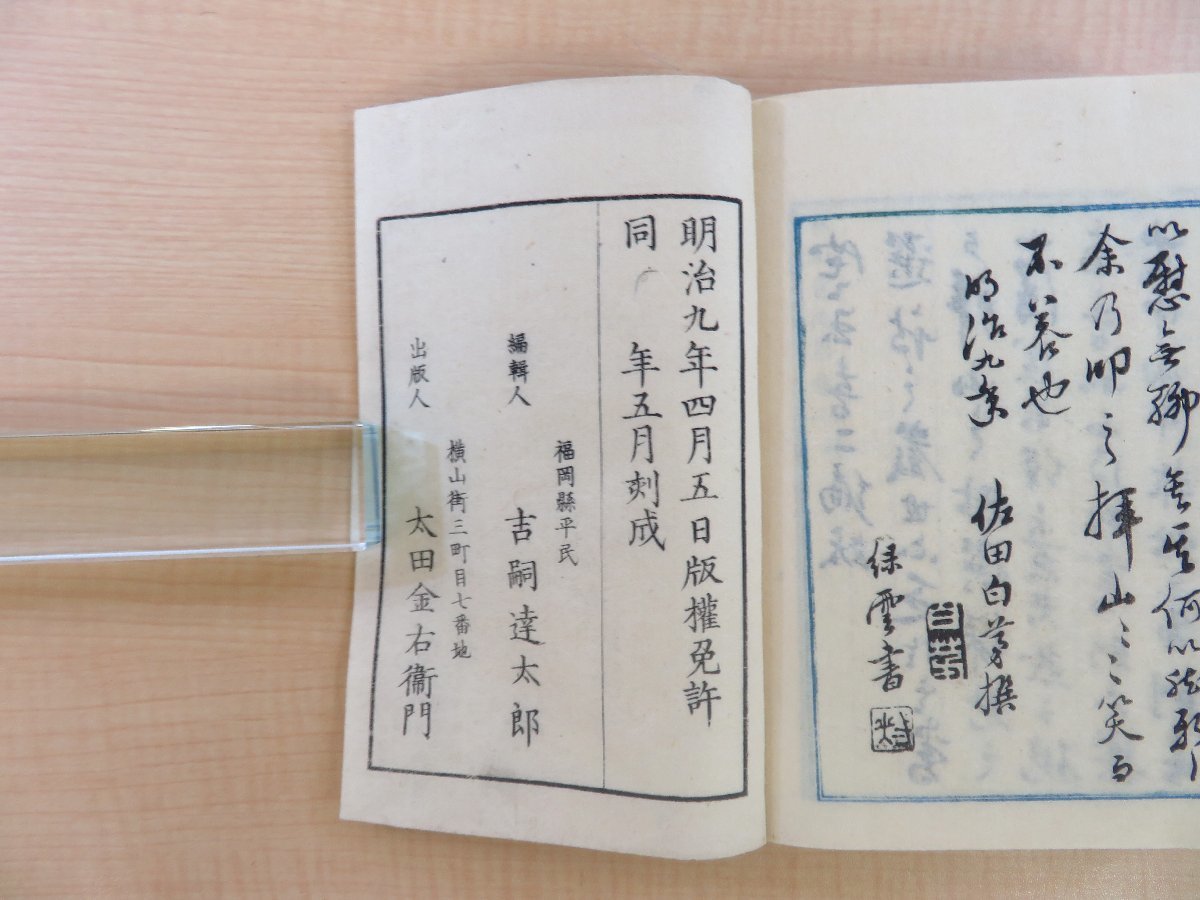 以慰無聊
余乃叩之拝山々々笑而
不答也
明治九年
佐田白茅撰
緑雲書
明治九年四月五日版權免許
同 年五月刻成
福岡縣平民
編輯人 吉嗣達太郎
横山街三町目七番地
出版人 太田金右衞門